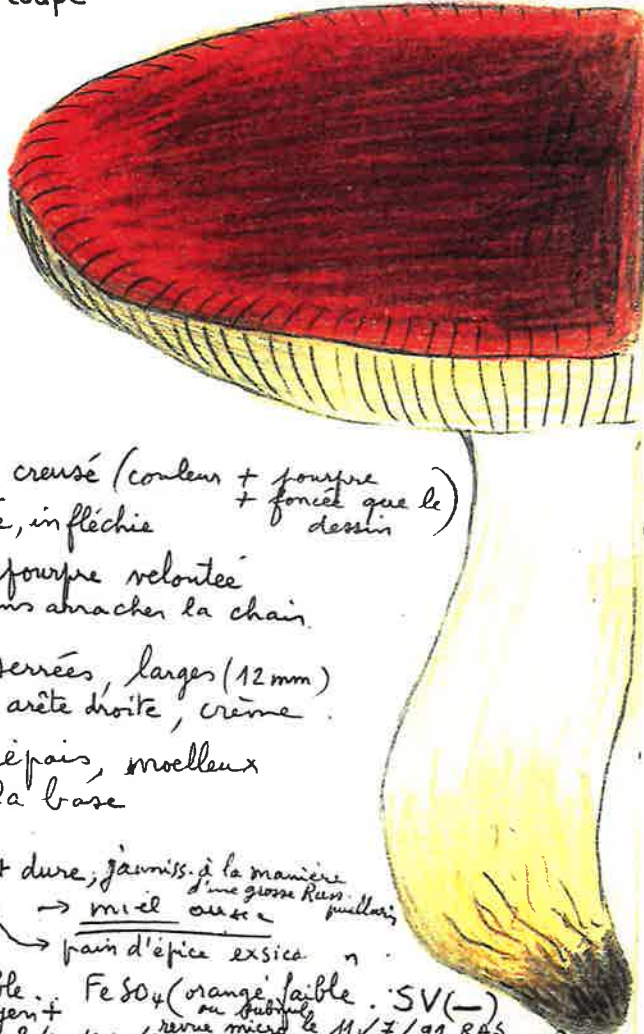 coupe
creusé (couleur + pourpre
+ foncée que le
infléchie dessin)
pourpre veloutée
arracher la chair
serrées, larges (12 mm)
arête droite, crème.
épais, moelleux
la base
dure, jauniss. à la manière
d'une grosse Russ. puellaris
→ miel
→ pain d'épice exsicc
FeSO4 (orangé faible. SV(-)
ou subnul
revue micro le 11/7/91 RAS